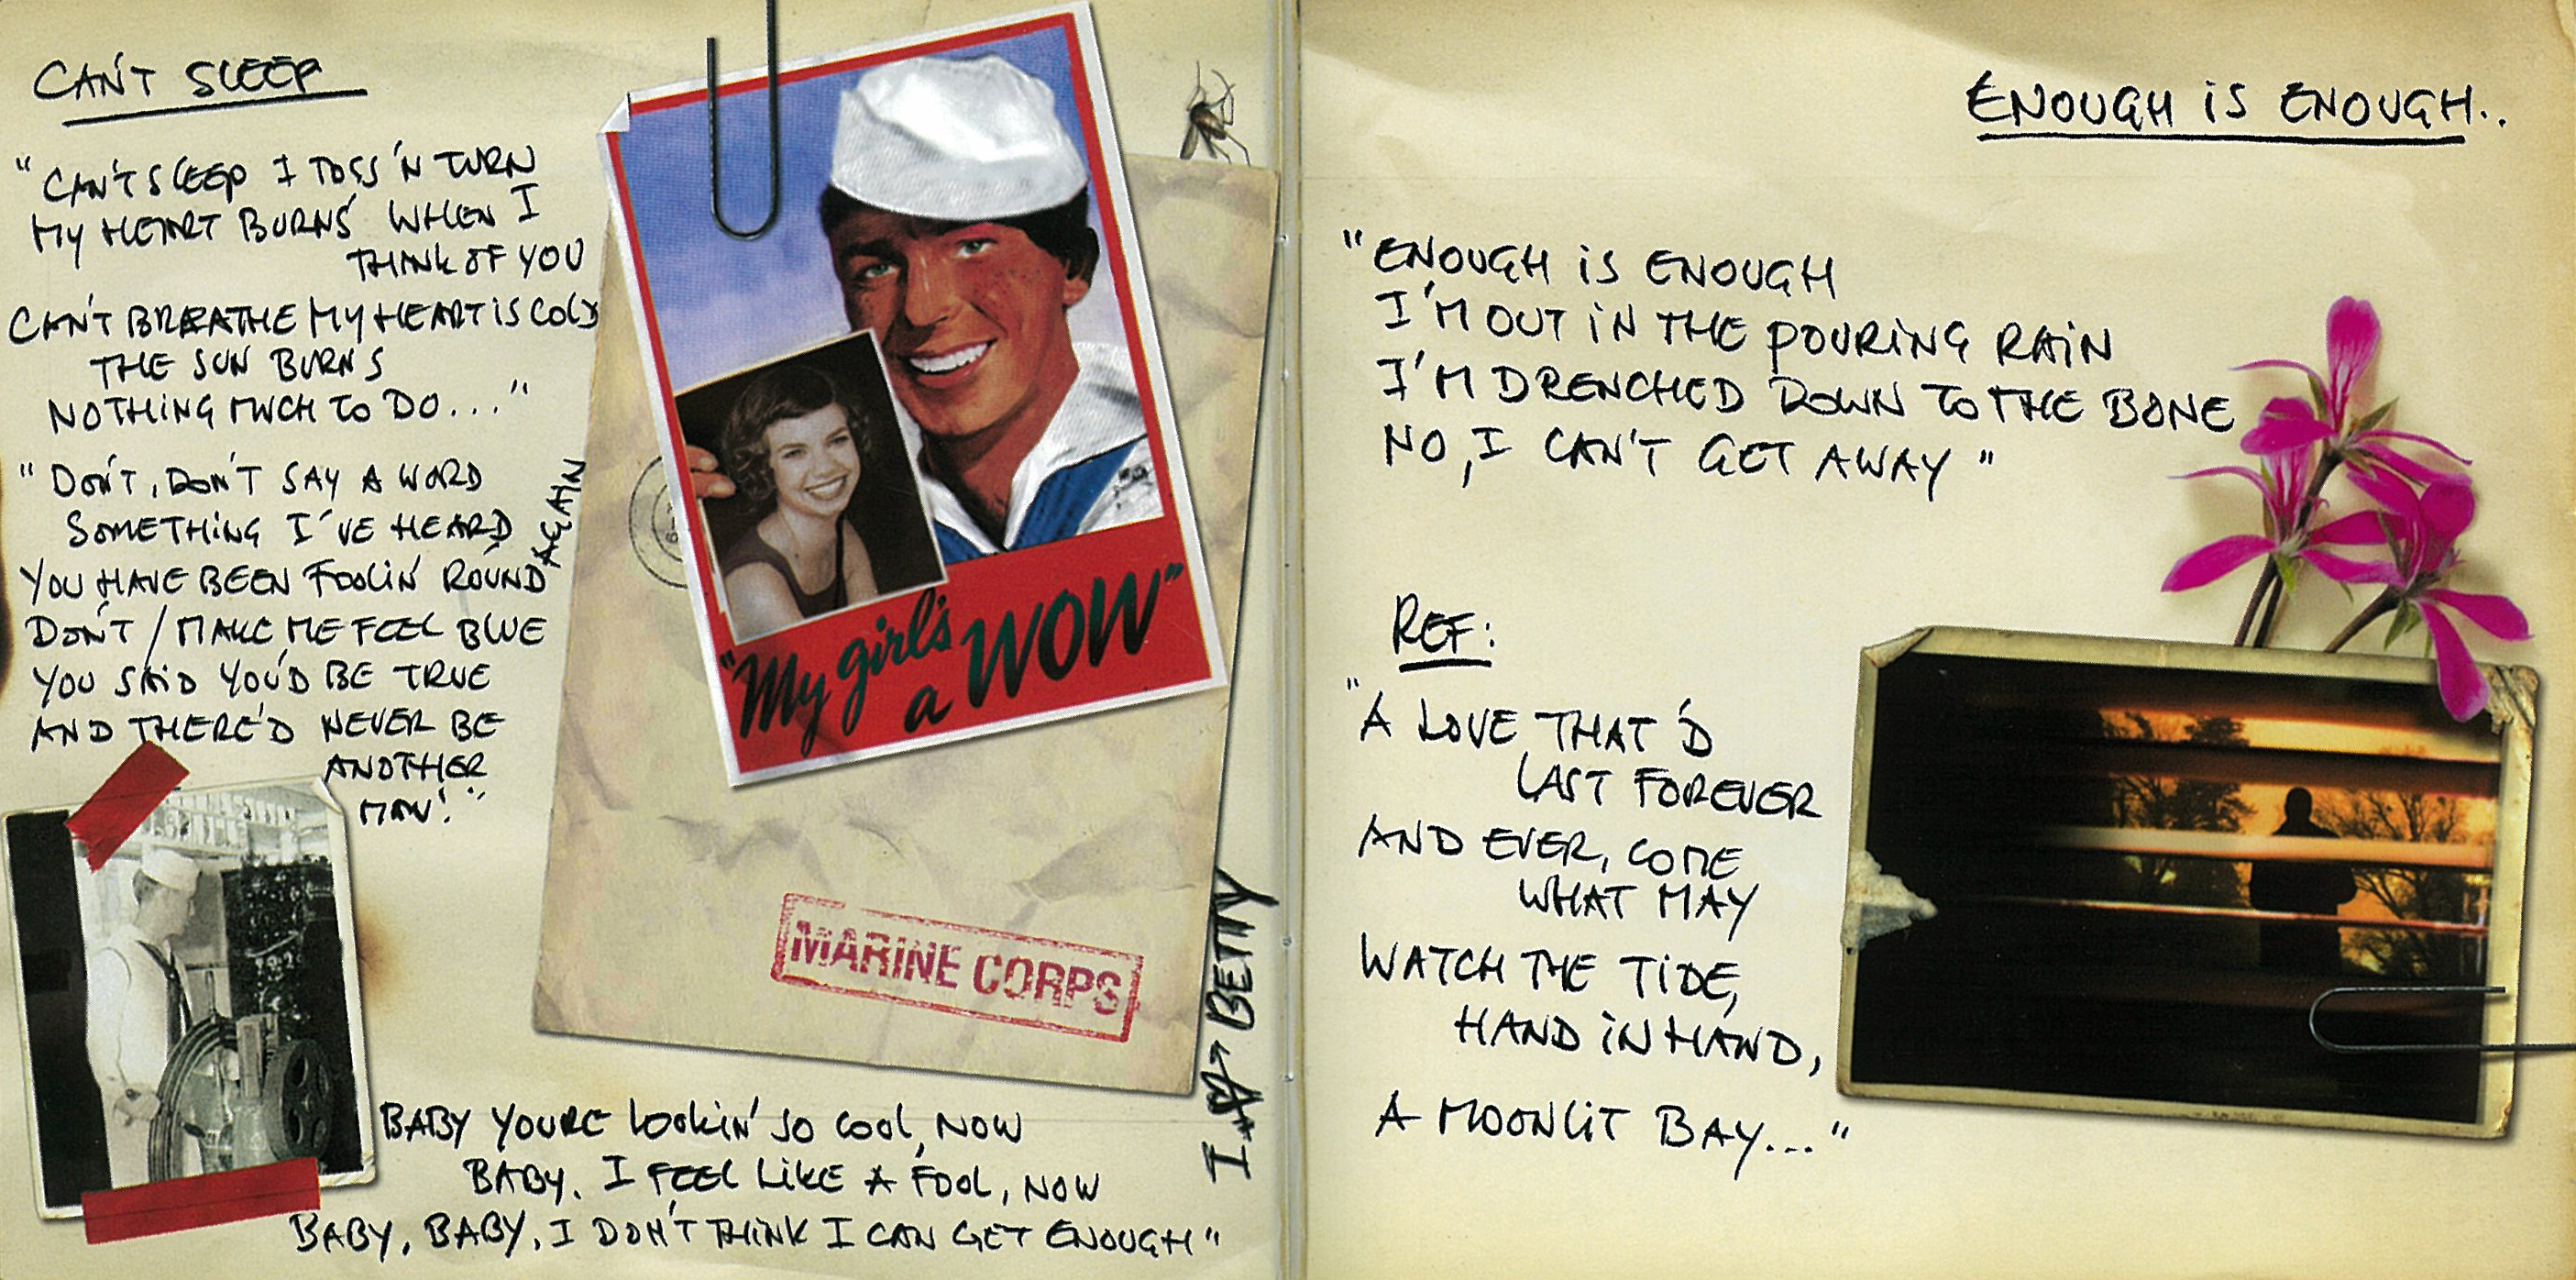 CAN'T SLEEP
"CAN'T SLEEP I TOSS 'N TURN
MY HEART BURNS WHEN I
THINK OF YOU
CAN'T BREATHE MY HEART IS COLD
THE SUN BURNS
NOTHING MUCH TO DO..."
"DON'T, DON'T SAY A WORD
SOMETHING I'VE HEARD
AGAIN
YOU HAVE BEEN FOOLIN' ROUND
DON'T / MAKE ME FEEL BLUE
YOU SAID YOU'D BE TRUE
AND THERE'D NEVER BE
ANOTHER
MAN!"
BABY YOURE LOOKIN' SO COOL, NOW
BABY, I FEEL LIKE A FOOL, NOW
BABY, BABY, I DON'T THINK I CAN GET ENOUGH"
"My girl's
a WOW"
MARINE CORPS
I BETTY
ENOUGH iS ENOUGH..
"ENOUGH iS ENOUGH
I'M OUT iN THE POURiNG RAiN
I'M DRENCHED DOWN TO THE BONE
NO, I CAN'T GET AWAY"
REF:
"A LOVE THAT'D
LAST FOREVER
AND EVER, COME
WHAT MAY
WATCH THE TiDE,
HAND iN HAND,
A MOONLiT BAY..."